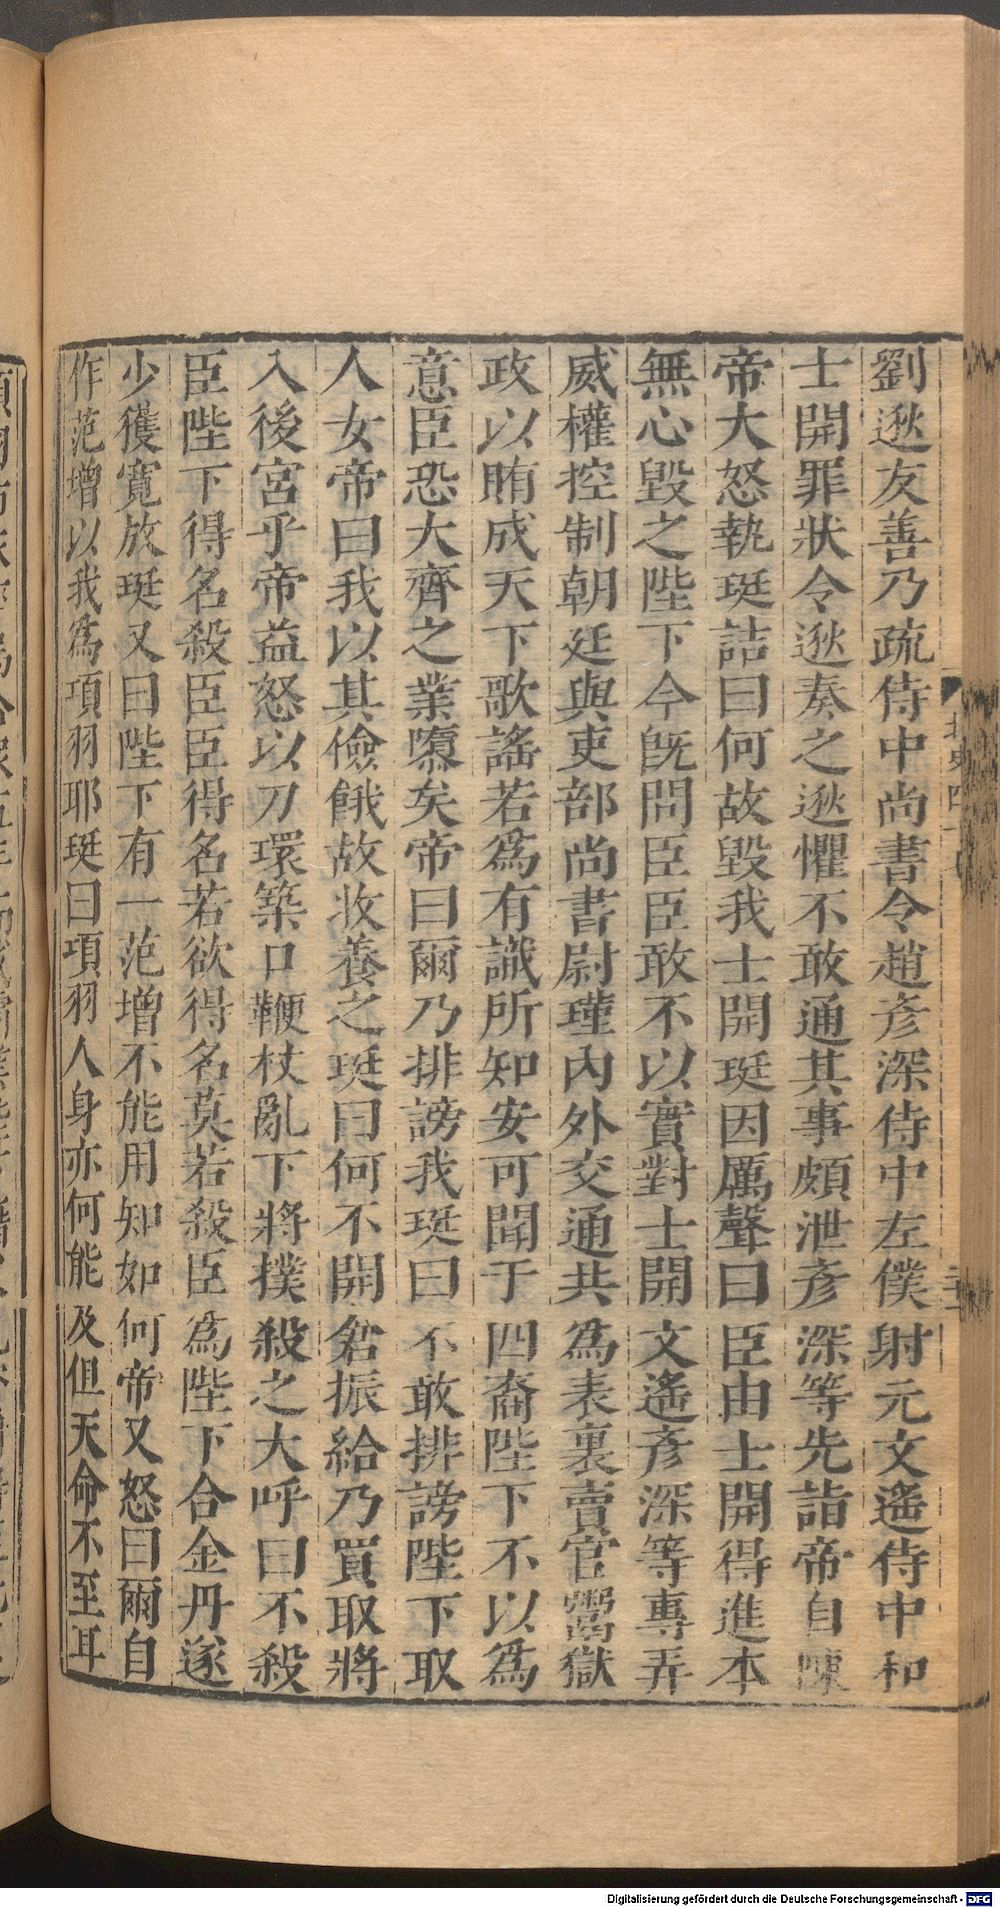 劉逖友善乃疏侍中尚書令趙彥深侍中左僕射元文遙侍中和
士開罪狀令逖奏之逖懼不敢通其事頗泄彥深等先詣帝自陳
帝大怒執珽詰曰何故毀我士開珽因厲聲曰臣由士開得進本
無心毀之陛下今旣問臣臣敢不以實對士開文遙彥深等專弄
威權控制朝廷與吏部尚書尉瑾內外交通共為表裏賣官鬻獄
政以賄成天下歌謠若為有識所知安可聞于四裔陛下不以為
意臣恐大齊之業隳矣帝曰爾乃排謗我珽曰不敢排謗陛下取
人女帝曰我以其儉餓故收養之珽曰何不開倉振給乃買取將
入後宮乎帝益怒以刀環築口鞭杖亂下將撲殺之大呼曰不殺
臣陛下得名殺臣臣得名若欲得名莫若殺臣為陛下合金丹遂
少獲寬放珽又曰陛下有一范增不能用知如何帝又怒曰爾自
作范增以我為項羽耶珽曰項羽人身亦何能及但天命不至耳
北史四十
Digitalisierung gefördert durch die Deutsche Forschungsgemeinschaft - DFG